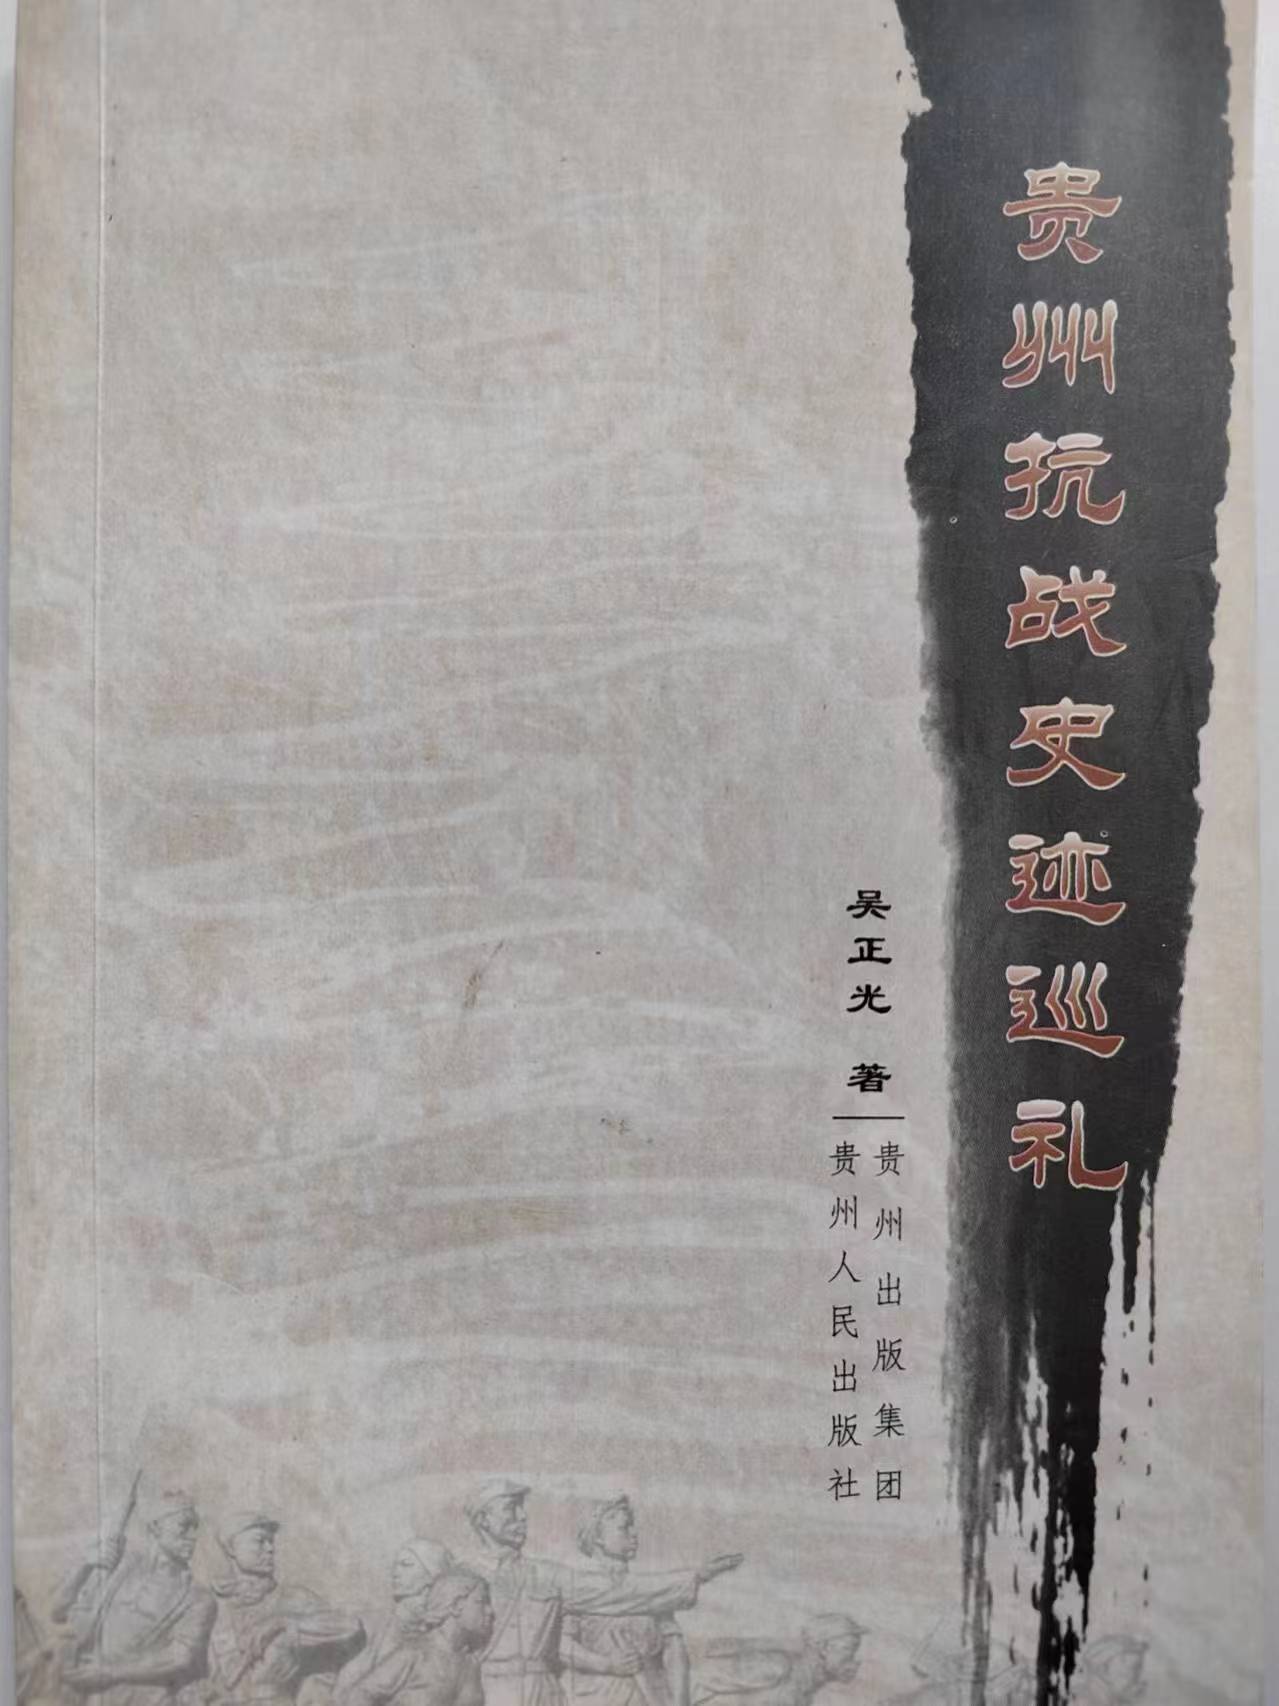 贵州抗战史迹巡礼
吴正光 著
贵州出版集团
贵州人民出版社